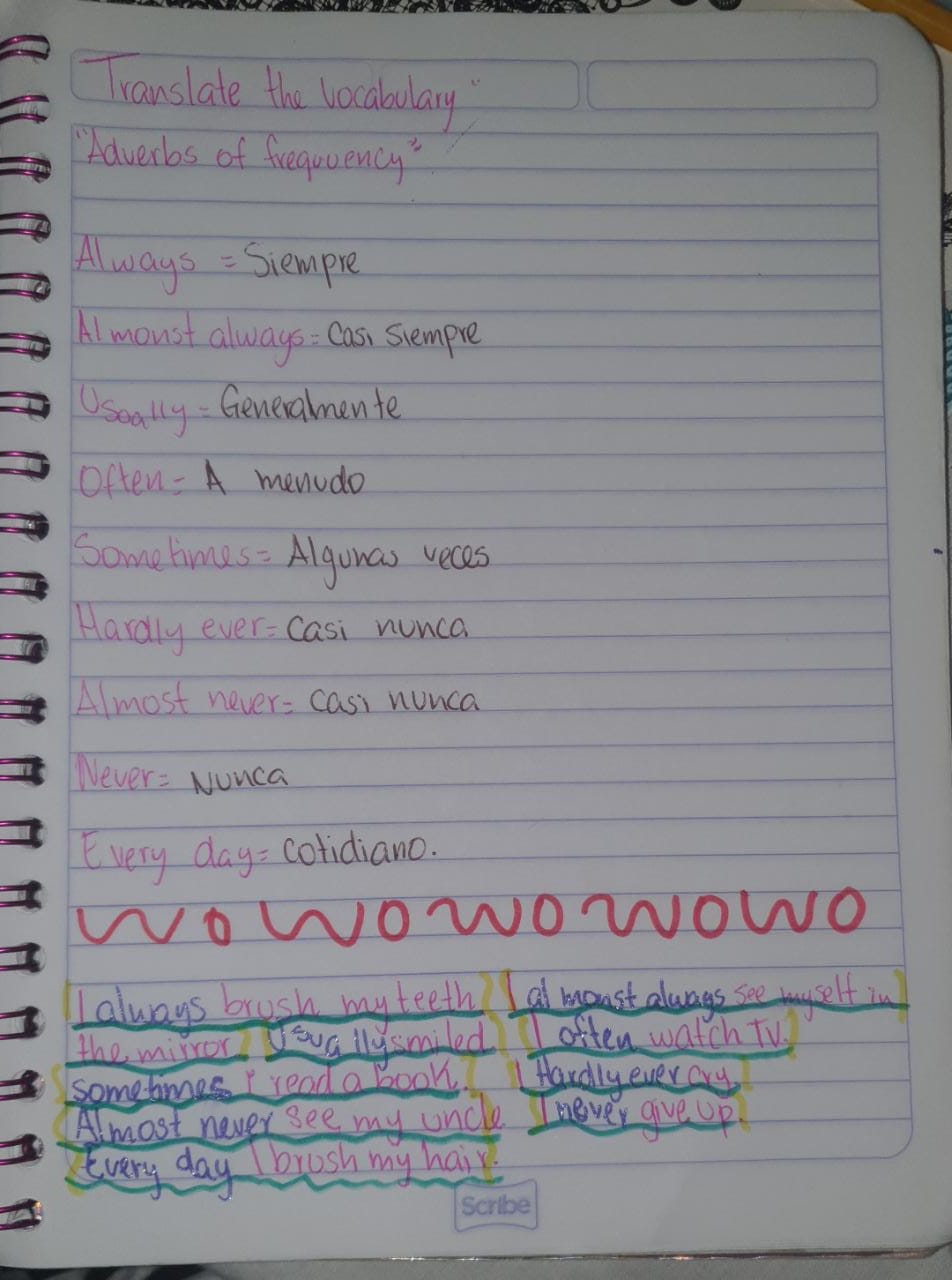 Translate the vocabulary"
"Adverbs of frequuency"
Always = Siempre
Almonst always = Casi siempre
Usoally = Generalmente
Often = A menudo
Sometimes = Algunas veces
Hardly ever = Casi nunca
Almost never = Casi nunca
Never = Nunca
Every day = Cotidiano.
WOWOWOWOWO
I always brush my teeth I almonst always see myself in
the mirror. Usually smiled I often watch TV.
sometimes I read a book. I Hardly ever cry
Almost never see my uncle I never give up
Every day I brush my hair.
Scribe